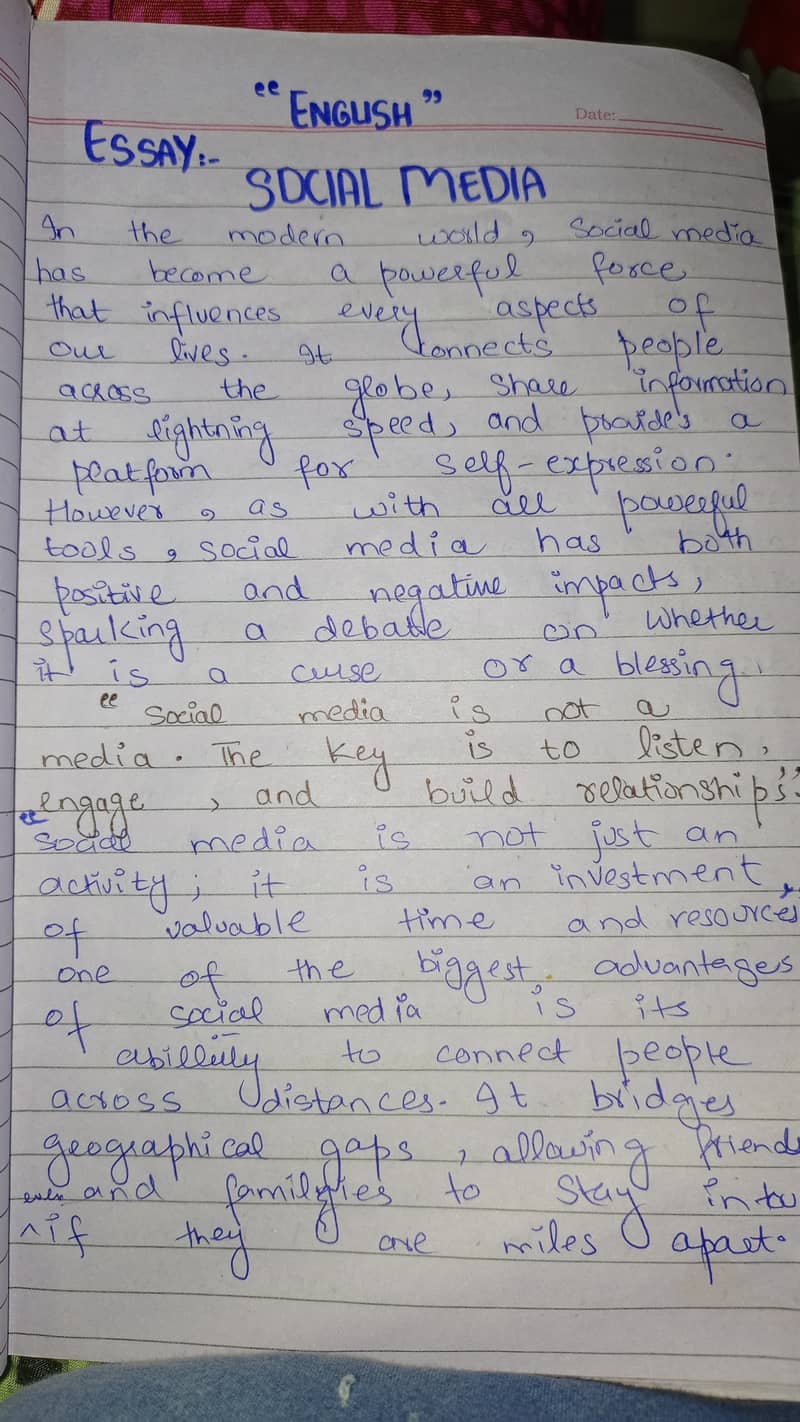 "ENGLISH"
Date:
ESSAY:-
SOCIAL MEDIA
In the modern world, social media
has become a powerful force
that influences every aspects of
our lives. It connects people
across the globe, share information
at lightning speed, and provide's a
platform for self-expression.
However, as with all powerful
tools, social media has both
positive and negative impacts,
sparking a debate on whether
it is a curse or a blessing.
"social media is not a
media. The key is to listen,
engage, and build relationships".
"social media is not just an
activity; it is an investment
of valuable time and resources"
one of the biggest advantages
of social media is its
abillity to connect people
across distances. It bridges
geographical gaps, allowing friends
and families to stay in
even
^if they are miles apart.